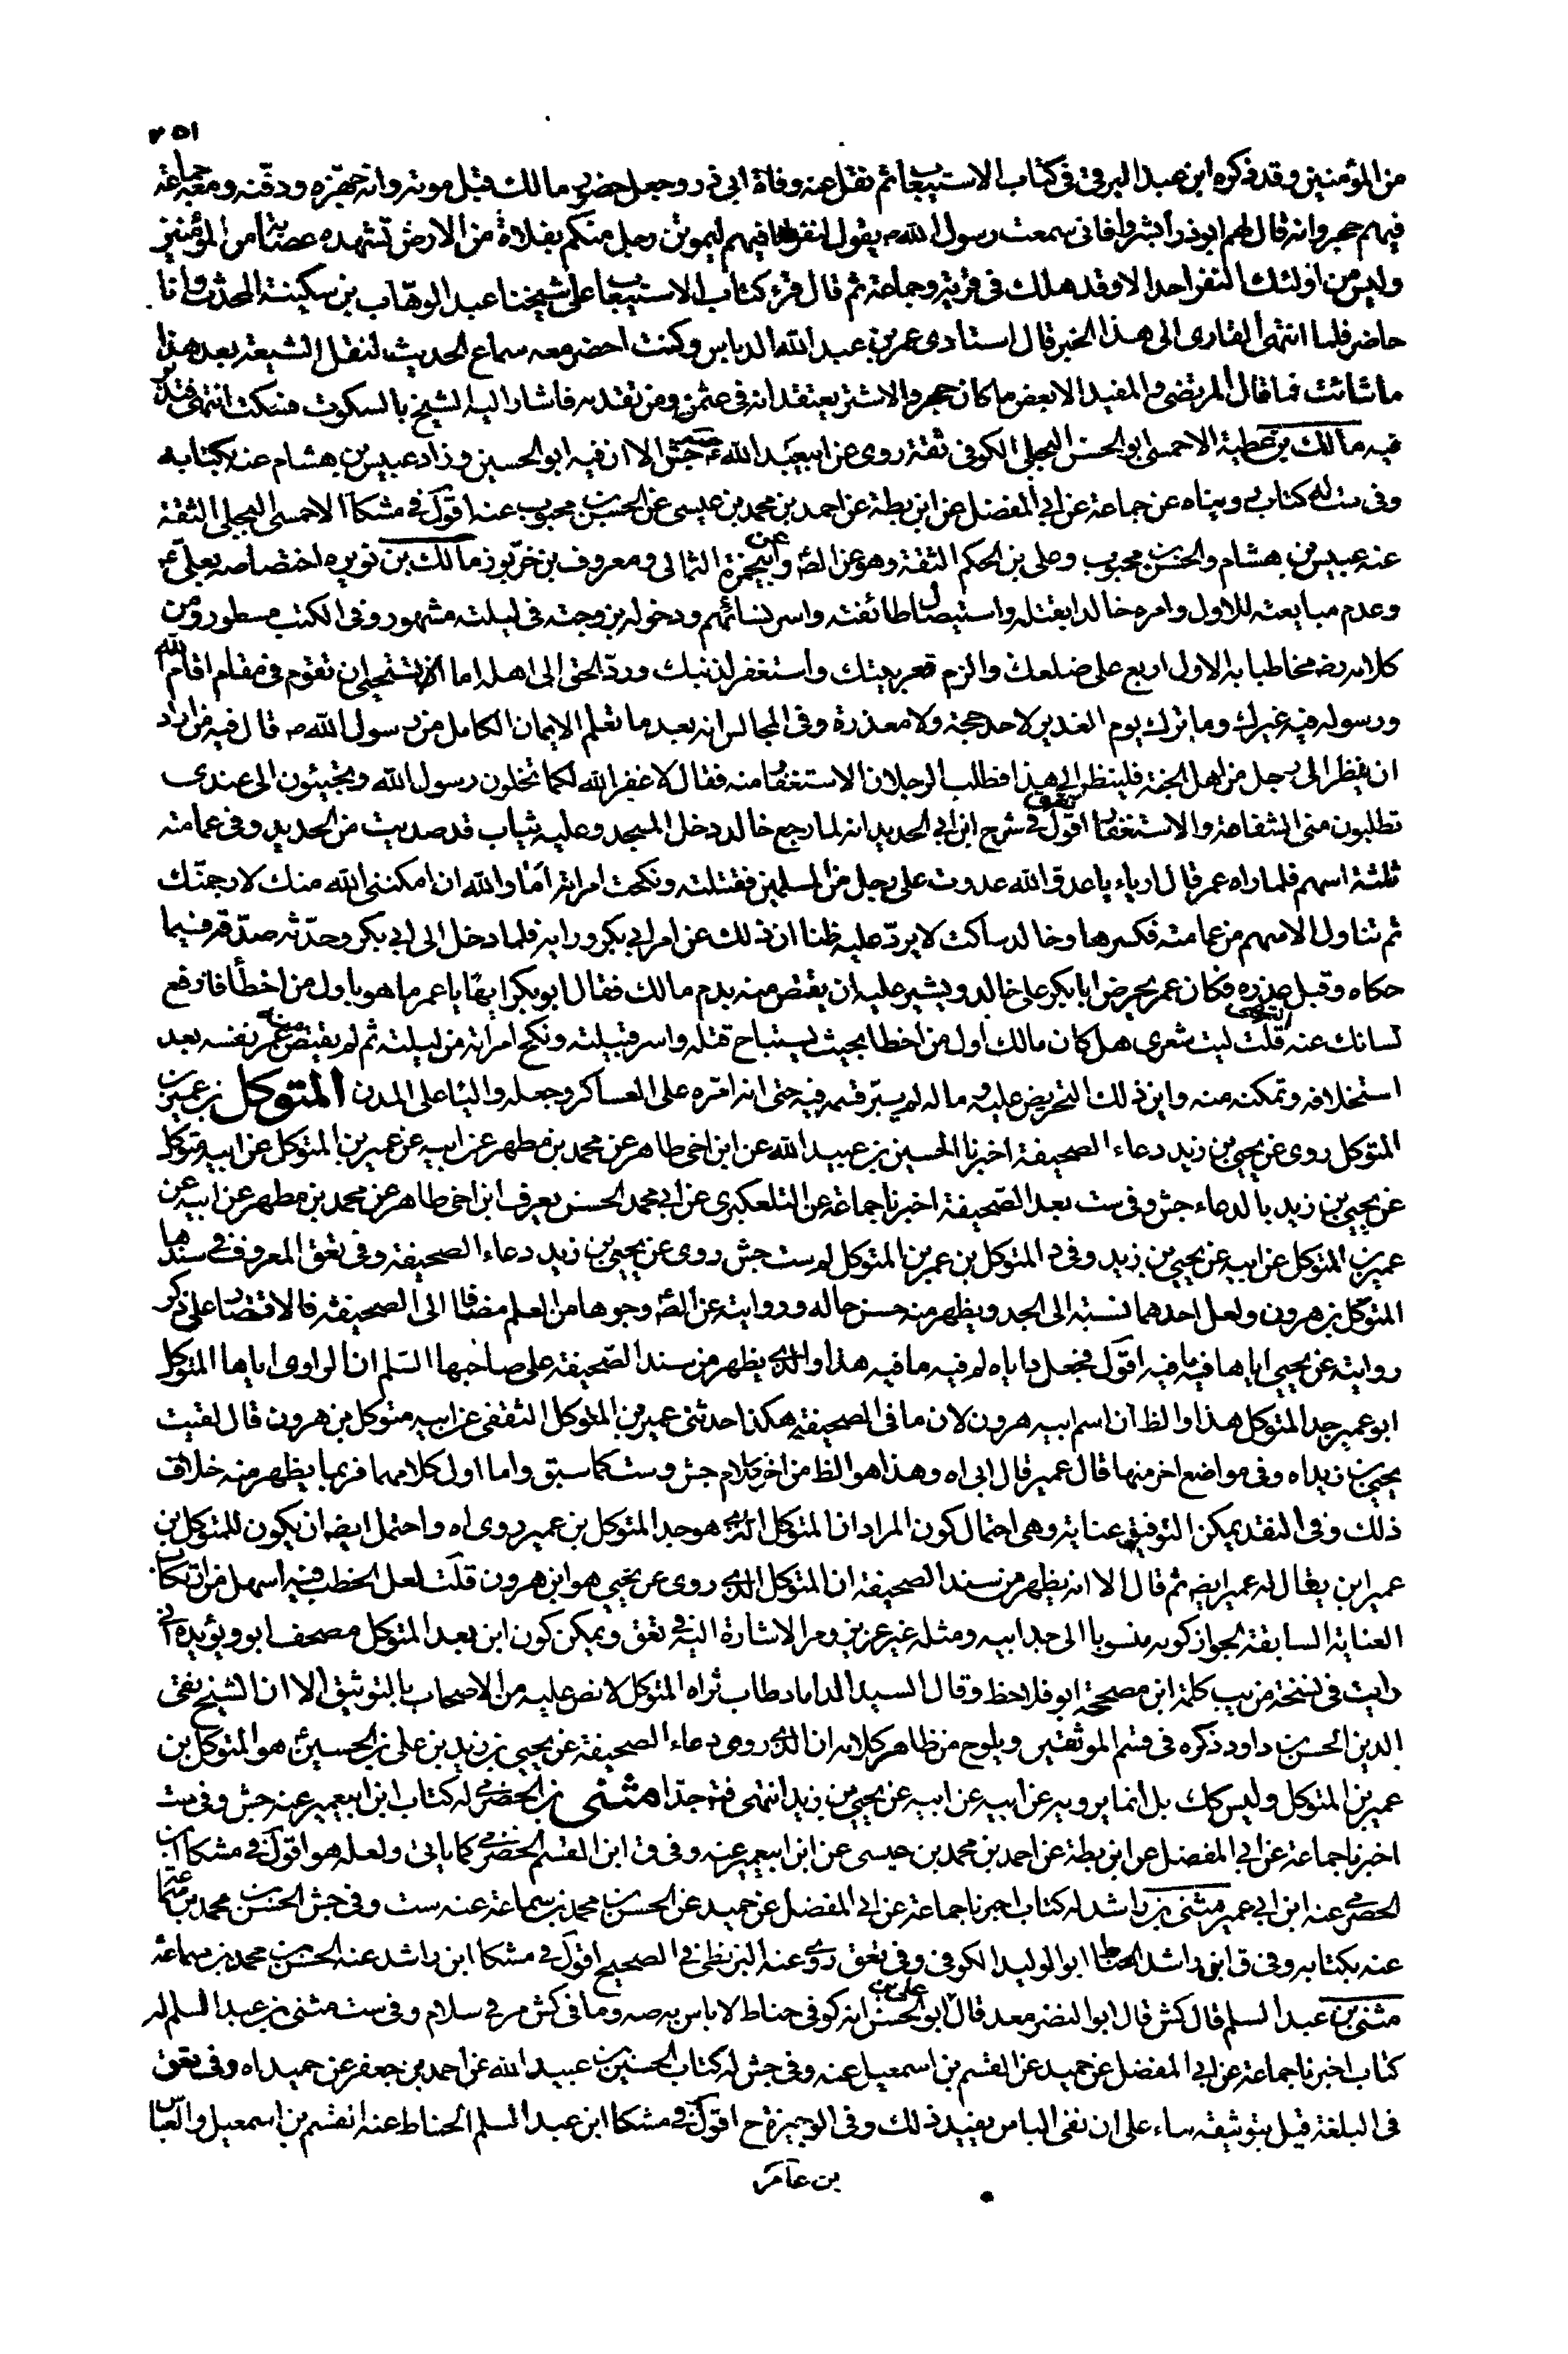 ٢٥١
من المؤمنين وقد ذكره ابن عبد البر في في كتاب الاستيعاب ثم نقل عنه وفاة ابي ذر وجعل حضور مالك قبل موته وانه جهزه ودفنه ومعه جماعة
فيهم حجر وانه قال لهم ابوذر ابشروا فاني سمعت رسول الله ص يقول لنفر انا فيهم ليموتن رجل منكم بفلاة من الارض تشهده عصابة من المؤمنين
وليس من اولئك النفر احد الا وقد هلك في قرية وجماعة ثم قال قرء كتاب الاستيعاب على شيخنا عبد الوهاب بن سكينة المحدث وانا
حاضر فلما انتهى القارى الى هذا الخبر قال استادى عمر بن عبد الله الدباس وكنت احضر معه سماع الحديث لتقل الشيعة بعد هذا
ما شائت فما قال المرتضى والمفيد الا بعض ما كان حجر والاشتر يعتقدانه في عثمن ومن تقدمه فاشار اليه الشيخ بالسكوت فسكت انتهى فتدبر
فيه مالك بن عطية الاحمسى ابو الحسن البجلي الكوفي ثقة روى عن ابيعبد الله ع جش الا ان فيه ابو الحسين وزاد عبيس بن هشام عنه بكتابه
وفي ست له كتاب رويناه عن جماعة عن ابي المفضل عن ابن بطة عن احمد بن محمد بن عيسى عن الحسن بن محبوب عنه اقول في مشكا الاحمسى البجلي الثقة
عنه عبيس بن هشام والحسن بن محبوب وعلى بن الحكم الثقة وهو عن الص‍ وعن ابيحمزة الثمالى ومعروف بن خربوذ مالك بن نويره اختصاصه بعلى ع
وعدم مبايعته للاول وامره خالدا بقتله واستيصال طائفته واسر نسائهم ودخوله بزوجته في ليلته مشهور وفي الكتب مسطور ومن
كلامه رض مخاطبا به الاول اربع على ضلعك والزم قعر بيتك واستغفر لذنبك ورد الحق الى اهله اما تستحيى ان تقوم في مقام اقام الله
ورسوله فيه غيرك وما ترك يوم الغدير لاحد حجة ولا معذرة وفي المجالس انه بعد ما تعلم الايمان الكامل من رسول الله ص قال فيه من اراد
ان ينظر الى رجل من اهل الجنة فلينظر الى هذا فطلب الرجلان الاستغفار منه فقال لا غفر الله لكما تخلون رسول الله وتجيئون الى عندى
تطلبون منى الشفاعة والاستغفار انتهى اقول في شرح ابن ابي الحديد انه لما رجع خالد دخل المسجد وعليه ثياب قد صديت من الحديد وفي عمامته
ثلثة اسهم فلما راه عمر قال ارياء يا عدو الله عدوت على رجل من المسلمين فقتلته ونكحت امراته اما والله ان امكننى الله منك لارجمنك
ثم تناول الاسهم من عمامته فكسرها وخالد ساكت لا يرد عليه ظنا ان ذلك عن امر ابي بكر ورايه فلما دخل الى ابي بكر وحدثه صدقه فيما
حكاه وقبل عذره فكان عمر يحرض ابا بكر على خالد ويشير عليه ان يقتص منه بدم مالك فقال ابو بكر ايها يا عمر ما هو باول من اخطأ فارفع
لسانك عنه انتهى قلت ليت شعرى هل كان مالك اول من اخطا بحيث يستباح قتله واسر قبيلته ونكح امراته من ليلته ثم لم يقتص منه عمر بنفسه بعد
استخلافه وتمكنه منه واين ذلك التحريض عليه وماله لم يبر قسمه فيه حتى انه امره على العساكر وجعله واليا على المدن المتوكل بن عمير بن
المتوكل روى عن يحيى بن زيد دعاء الصحيفة اخبرنا الحسين بن عبيد الله عن ابن اخى طاهر عن محمد بن مطهر عن ابيه عن عمير بن المتوكل عن ابيه متوكل
عن يحيى بن زيد بالدعاء جش وفي ست بعد الصحيفة اخبرنا جماعة عن التلعكبرى عن ابي محمد الحسن يعرف ابن اخى طاهر عن محمد بن مطهر عن ابيه عن
عمير بن المتوكل عن ابيه عن يحيى بن زيد وفي د المتوكل بن عمير بن المتوكل لم ست جش روى عن يحيى بن زيد دعاء الصحيفة وفي تعق المعروف في سندها
المتوكل بن هرون ولعل احدهما نسبة الى الجد ويظهر منه حسن حاله وروايته عن الص‍ وجوها من العلم مضافا الى الصحيفة فالاقتصار على ذكر
روايته عن يحيى اياها فيه ما فيه اقول فجعل د اياه لم فيه ما فيه هذا والذي يظهر من سند الصحيفة على صاحبها السلم ان الراوى اياها المتوكل
ابو عمير جد المتوكل هذا والظ ان اسم ابيه هرون لان ما في الصحيفة هكذا حدثنى عمير بن المتوكل الثقفى عن ابيه متوكل بن هرون قال لقيت
يحيى بن زيد اه وفي مواضع اخر منها قال عمير قال ابى اه وهذا هو الظ من اخر كلام جش وست كما سبق واما اول كلامهما فربما يظهر منه خلاف
ذلك وفي النقد يمكن التوفيق بعناية وهى احتمال كون المراد ان المتوكل الذي هو جد المتوكل بن عمير روى اه واحتمل ايضه ان يكون للمتوكل بن
عمير ابن يقال له عمير ايضه ثم قال الا انه يظهر من سند الصحيفة ان المتوكل الذي روى عن يحيى هو ابن هرون قلت لعل الخطب فيه اسهل من ارتكاب
العناية السابقة لجواز كونه منسوبا الى جد ابيه ومثله غير عزيز ومر الاشارة اليه في تعق ويمكن كون ابن بعد المتوكل مصحف ابو ويؤيده انى
رايت في نسخة من يب كلمة ابن مصححة ابو فلاحظ وقال السيد الداماد طاب ثراه المتوكل لا نص عليه من الاصحاب بالتوثيق الا ان الشيخ تقى
الدين الحسن بن داود ذكره في قسم الموثقين ويلوح من ظاهر كلامه ان الذي روى دعاء الصحيفة عن يحيى بن زيد بن على بن الحسين ع هو المتوكل بن
عمير بن المتوكل وليس كك بل انما يرويه عن ابيه عن ابيه عن يحيى بن زيد انتهى فتدبر جدا مثنى بن الحضرمى له كتاب ابن ابيعمير عنه جش وفي ست
اخبرنا جماعة عن ابي المفضل عن ابن بطة عن احمد بن محمد بن عيسى عن ابن ابيعمير عنه وفي ق ابن القسم الحضرمى كما ياتى ولعله هو اقول في مشكا ابن
الحضرمى عنه ابن ابي عمير مثنى بن راشد له كتاب اخبرنا جماعة عن ابي المفضل عن حميد عن الحسن بن محمد بن سماعة عنه ست وفي جش الحسن بن محمد بن سماعة
عنه بكتابه وفي ق ابن راشد الحناط ابو الوليد الكوفي وفي تعق روى عنه البزنطى في الصحيح اقول في مشكا ابن راشد عنه الحسن بن محمد بن سماعة
مثنى بن عبد السلم قال كش قال ابو النضر محمد قال ابو الحسن على بن انه كوفي حناط لا باس به صه وما في كش مر في سلام وفي ست مثنى بن عبد السلم له
كتاب اخبرنا جماعة عن ابي المفضل عن حميد عن القسم بن اسمعيل عنه وفي جش له كتاب الحسين بن عبيد الله عن احمد بن جعفر عن حميد اه وفي تعق
في البلغة قيل بتوثيقه بناء على ان نفى الباس يفيد ذلك وفي الوجيزة ح اقول في مشكا ابن عبد السلم الحناط عنه القسم بن اسمعيل والعباس
بن عامر